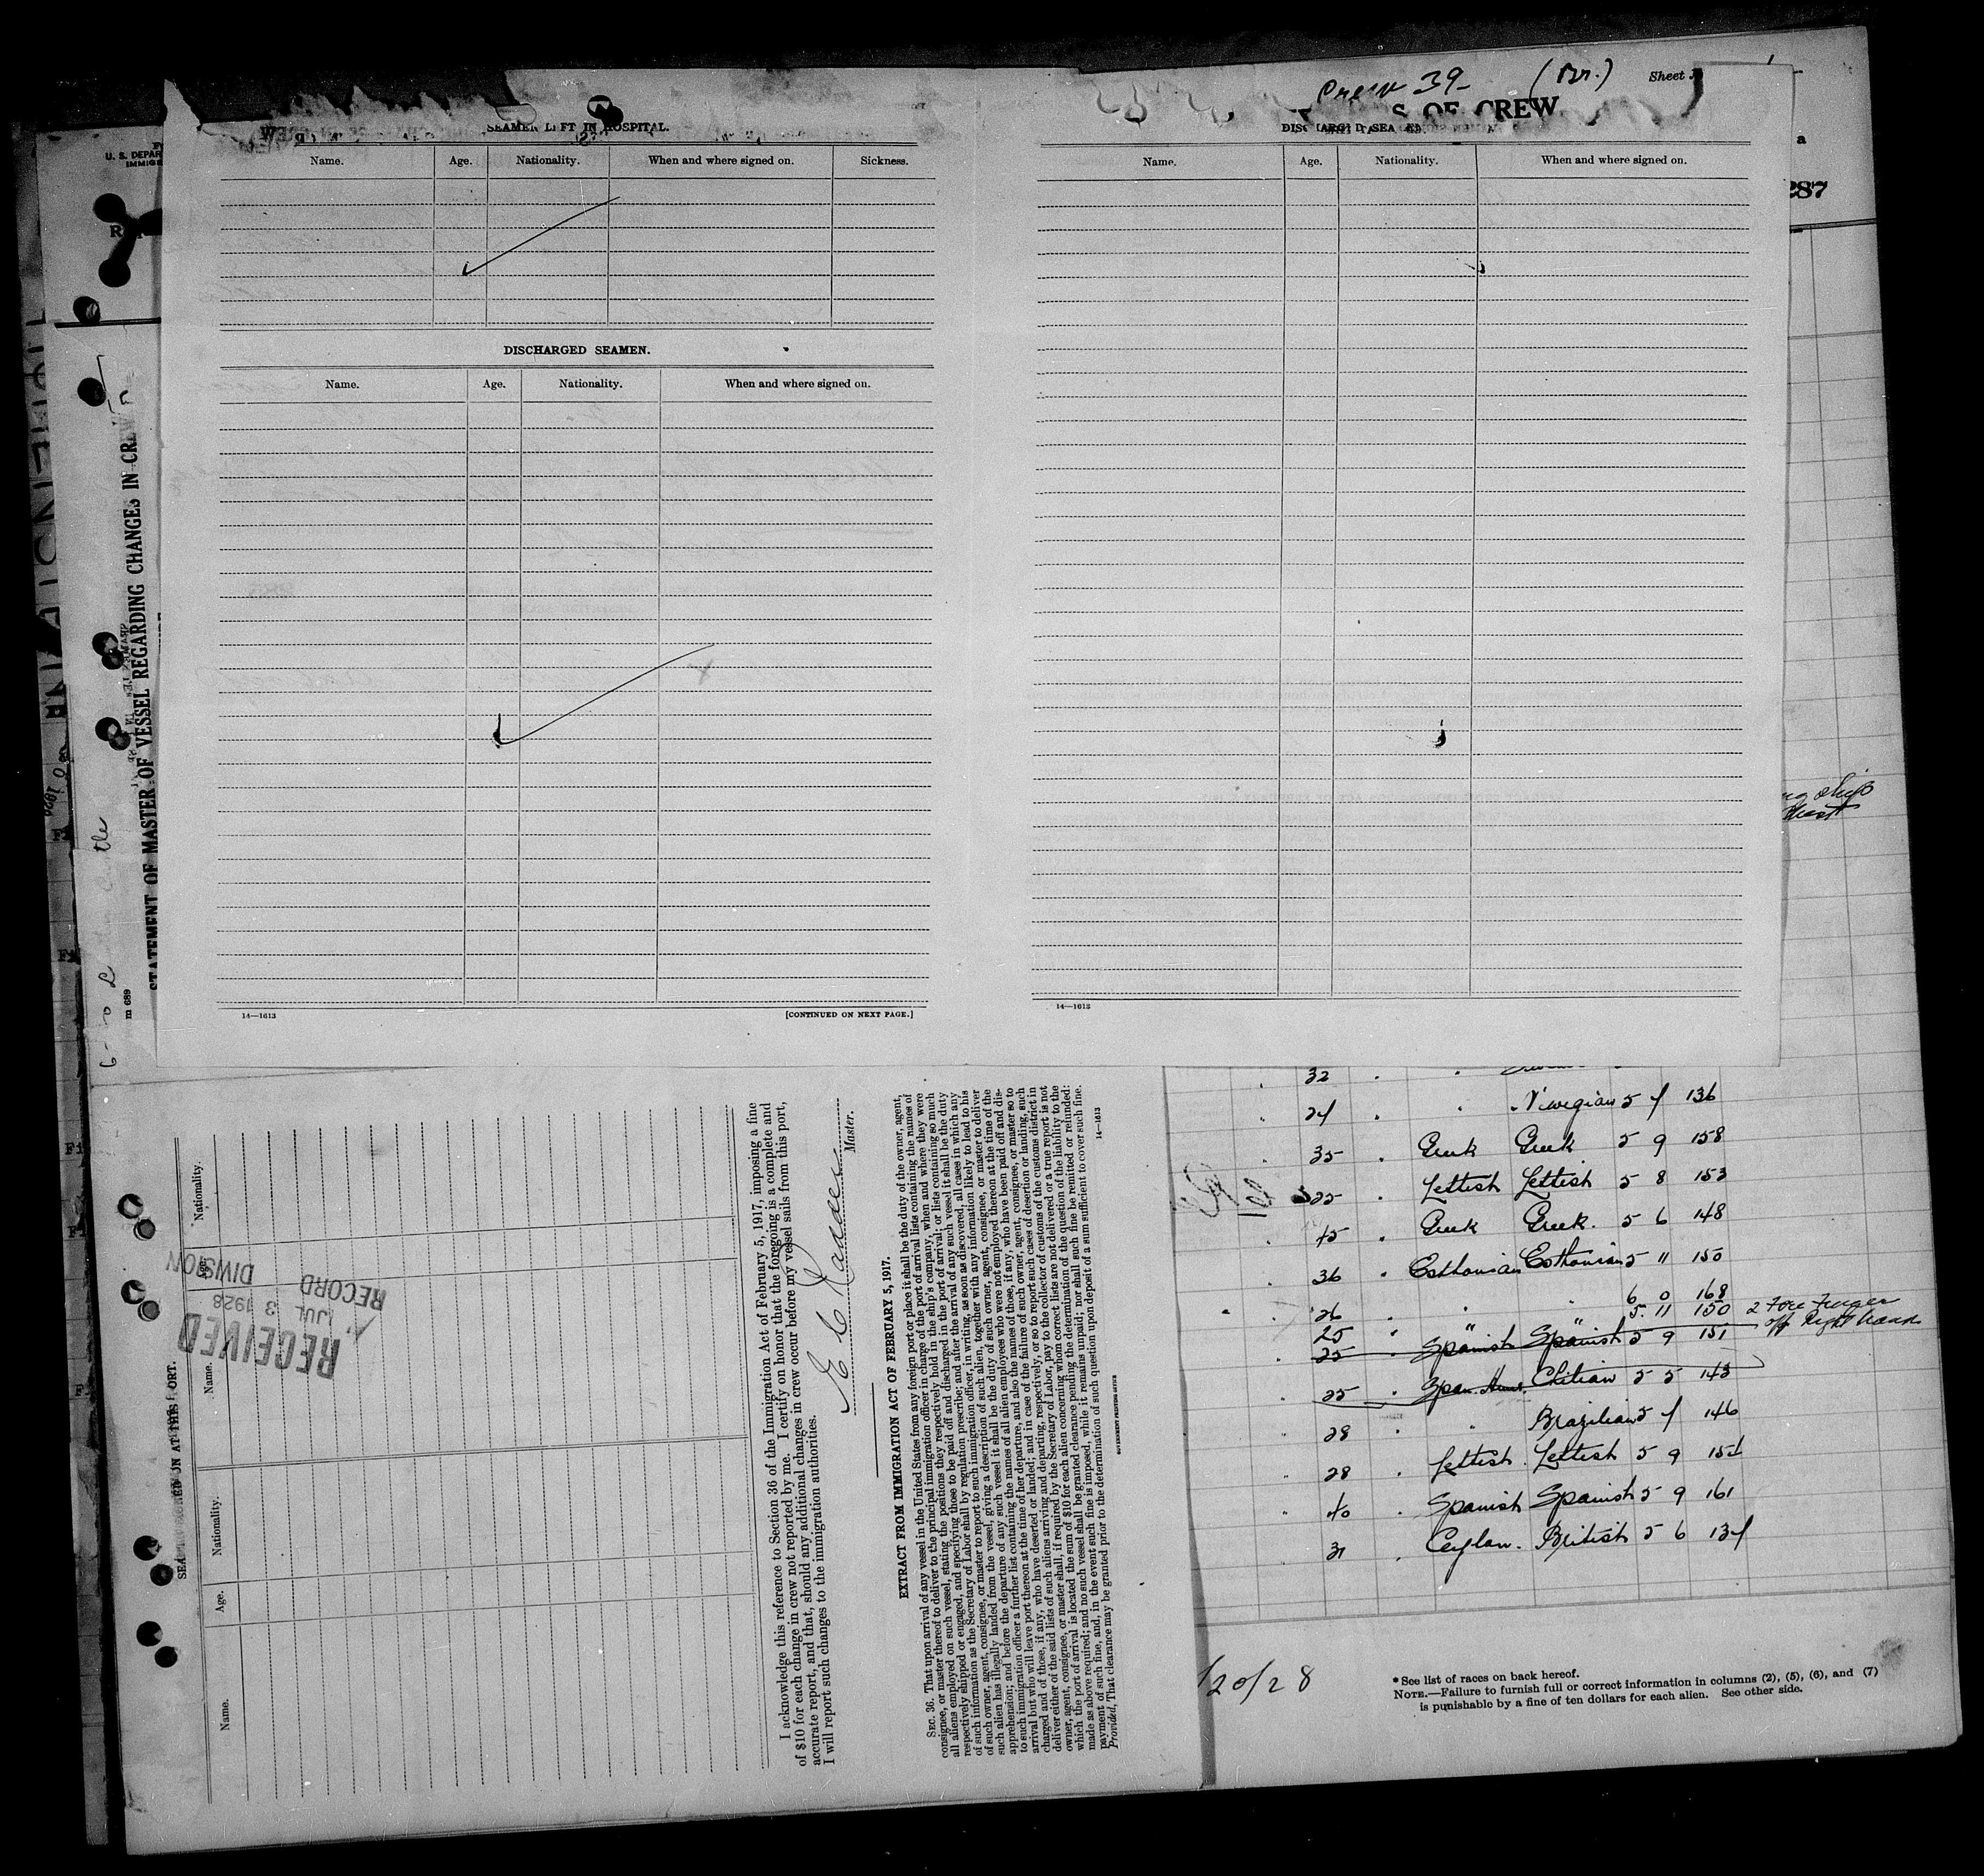 Crew 39- (Br.) Sheet
S OF CREW
SEAMEN LEFT IN HOSPITAL.
Name. Age. Nationality. When and where signed on. Sickness.
DISCHARGED SEAMEN.
Name. Age. Nationality. When and where signed on.
14—1613 [CONTINUED ON NEXT PAGE.]
DISCHARGED SEAMEN
Name. Age. Nationality. When and where signed on.
14—1613
287
U. S. DEPAR
IMMIG
STATEMENT OF MASTER OF VESSEL REGARDING CHANGES IN CREW
m 689
ship
32
24 Norwegian 5 7 136
35 Greek Greek 5 9 158
25 Lettish Lettish 5 8 153
45 Greek Greek. 5 6 148
36 Esthonian Esthonian 5 11 150
26 " " 6 0 168
25 " " 5. 11 150 2 Fore Finger
off Right hand
25 Spanish Spanish 5 9 151
25 Span. Amer. Chilian 5 5 143
28 Brazilian 5 7 146
28 Lettish. Lettish 5 9 151
40 Spanish Spanish 5 9 161
31 Ceylan. British 5 6 137
/20/28
* See list of races on back hereof.
NOTE.—Failure to furnish full or correct information in columns (2), (5), (6), and (7)
is punishable by a fine of ten dollars for each alien. See other side.
SEAMEN SIGNED ON AT THIS PORT.
Name. Age. Nationality. Name. Age. Nationality.
RECEIVED
JUL 3 1928
RECORD
DIVISION
I acknowledge this reference to Section 36 of the Immigration Act of February 5, 1917, imposing a fine
of $10 for each change in crew not reported by me. I certify on honor that the foregoing is a complete and
accurate report, and that, should any additional changes in crew occur before my vessel sails from this port,
I will report such changes to the immigration authorities.
E C
Master.
EXTRACT FROM IMMIGRATION ACT OF FEBRUARY 5, 1917.
SEC. 36. That upon arrival of any vessel in the United States from any foreign port or place it shall be the duty of the owner, agent,
consignee, or master thereof to deliver to the principal immigration officer in charge of the port of arrival lists containing the names of
all aliens employed on such vessel, stating the positions they respectively hold in the ship's company, when and where they were
respectively shipped or engaged, and specifying those to be paid off and discharged in the port of arrival; or lists containing so much
of such information as the Secretary of Labor shall by regulation prescribe; and after the arrival of any such vessel it shall be the duty
of such owner, agent, consignee, or master to report to such immigration officer, in writing, as soon as discovered, all cases in which any
such alien has illegally landed from the vessel, giving a description of such alien, together with any information likely to lead to his
apprehension; and before the departure of any such vessel it shall be the duty of such owner, agent, consignee, or master to deliver
to such immigration officer a further list containing the names of all alien employees who were not employed thereon at the time of the
arrival but who will leave port thereon at the time of her departure, and also the names of those, if any, who have been paid off and dis-
charged and of those, if any, who have deserted or landed; and in case of the failure of such owner, agent, consignee, or master so to
deliver either of the said lists of such aliens arriving and departing, respectively, or so to report such cases of desertion or landing, such
owner, agent, consignee, or master shall, if required by the Secretary of Labor, pay to the collector of customs of the customs district in
which the port of arrival is located the sum of $10 for each alien concerning whom correct lists are not delivered or a true report is not
made as above required; and no such vessel shall be granted clearance pending the determination of the question of the liability to the
payment of such fine, and, in the event such fine is imposed, while it remains unpaid; nor shall such fine be remitted or refunded:
Provided, That clearance may be granted prior to the determination of such question upon deposit of a sum sufficient to cover such fine.
14—1613
GOVERNMENT PRINTING OFFICE